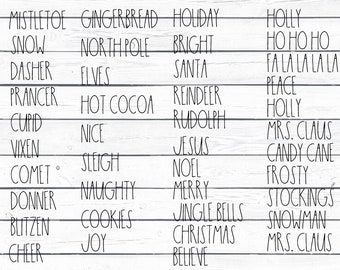 MISTLETOE
SNOW
DASHER
PRANCER
CUPID
VIXEN
COMET
DONNER
BLITZEN
CHEER
GINGERBREAD
NORTH POLE
ELVES
HOT COCOA
NICE
SLEIGH
NAUGHTY
COOKIES
JOY
HOLIDAY
BRIGHT
SANTA
REINDEER
RUDOLPH
JESUS
NOEL
MERRY
JINGLE BELLS
CHRISTMAS
BELIEVE
HOLLY
HO HO HO
FA LA LA LA LA
PEACE
HOLLY
MRS. CLAUS
CANDY CANE
FROSTY
STOCKINGS
SNOWMAN
MRS. CLAUS